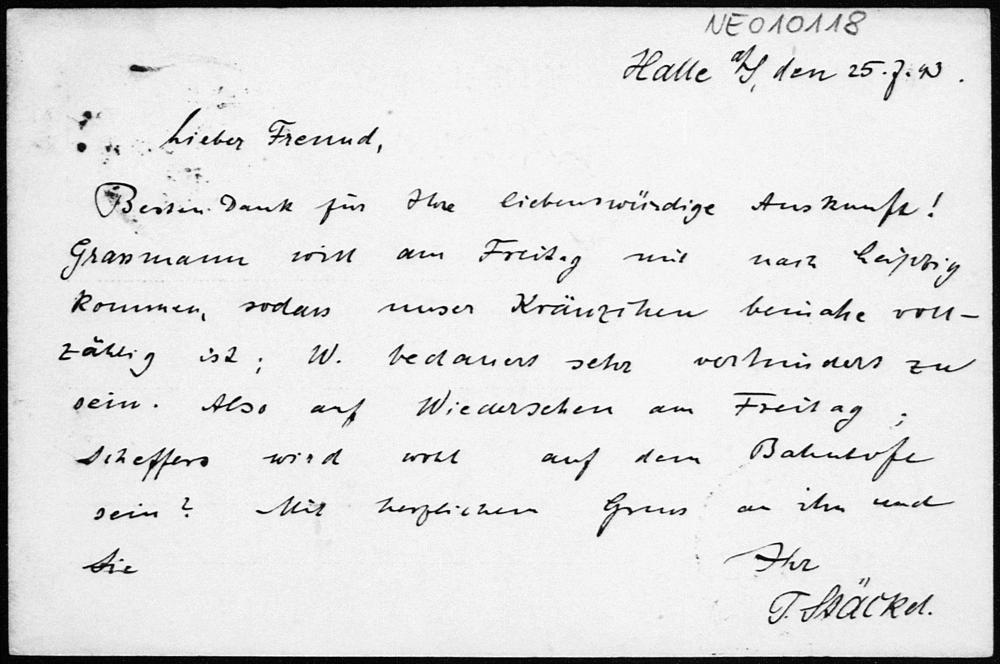 NE010118
Halle a/S, den 25. 7. 93.
Lieber Freund,
Besten Dank für Ihre liebenswürdige Auskunft!
Grassmann will am Freitag mit nach Leipzig
kommen, sodass unser Kränzchen beinahe voll-
zählig ist; W. bedauert sehr verhindert zu
sein. Also auf Wiedersehen am Freitag;
Scheffers wird wohl auf dem Bahnhofe
sein? Mit herzlichem Gruss an ihn und
Sie
Ihr
P. Stäckel.